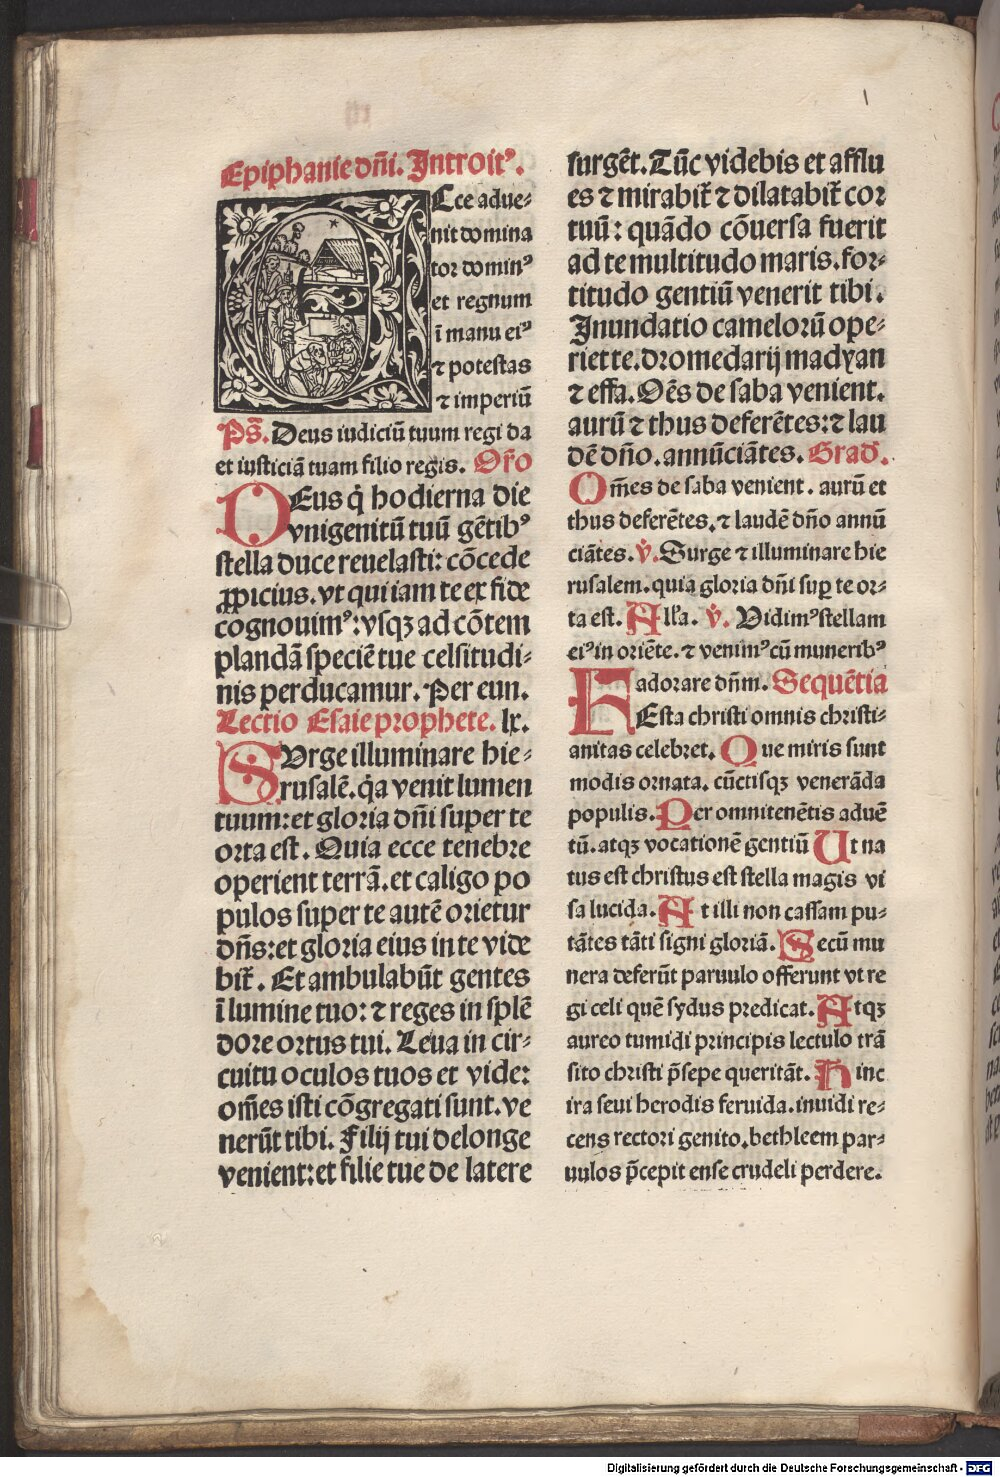 Epiphanie dn̄i. Introitꝰ.
Ecce adue-
nit domina
tor dominꝰ
et regnum
ī manu eiꝰ
⁊ potestas
⁊ imperiū
Ps̄. Deus iudiciū tuum regi da
et iusticiā tuam filio regis. Or̄o
DEus q̇ hodierna die
vnigenitū tuū gētibꝰ
stella duce reuelasti: cōcede
ꝓpicius. vt qui iam te ex fide
cognouimꝰ: vsqꝫ ad cōtem
plandā speciē tue celsitudi-
nis perducamur. Per eun.
Lectio Esaie prophete. lx.
SUrge illuminare hie-
rusalē. q̇a venit lumen
tuum: et gloria dn̄i super te
orta est. Quia ecce tenebre
operient terrā. et caligo po
pulos super te autē orietur
dn̄s: et gloria eius in te vide
bit̄. Et ambulabūt gentes
ī lumine tuo: ⁊ reges in splē
dore ortus tui. Leua in cir-
cuitu oculos tuos et vide:
om̄es isti cōgregati sunt. ve
nerūt tibi. Filij tui delonge
venient: et filie tue de latere
surgēt. Tūc videbis et afflu
es ⁊ mirabit̄ ⁊ dilatabit̄ cor
tuū: quādo cōuersa fuerit
ad te multitudo maris. for-
titudo gentiū venerit tibi.
Inundatio camelorū ope-
riet te. dromedarij madyan
⁊ effa. Om̄s de saba venient.
aurū ⁊ thus deferētes: ⁊ lau
dē dn̄o. annūciātes. Grad̄.
Om̄es de saba venient. aurū et
thus deferētes. ⁊ laudē dn̄o annū
ciātes. v̇. Surge ⁊ illuminare hie
rusalem. quia gloria dn̄i suꝑ te or-
ta est. All̄a. v̇. Vidimꝰ stellam
eiꝰ in oriēte. ⁊ venimꝰ cū muneribꝰ
adorare dn̄m. Sequētia
FEsta christi omnis christi-
anitas celebret. Que miris sunt
modis ornata. cūctisqꝫ venerāda
populis. Per omnitenētis aduē
tū. atqꝫ vocationē gentiū Ut na
tus est christus est stella magis vi
sa lucida. At illi non cassam pu-
tātes tāti signi gloriā. Secū mu
nera deferūt paruulo offerunt vt re
gi celi quē sydus predicat. Atqꝫ
aureo tumidi principis lectulo trā
sito christi p̄sepe queritāt. Hinc
ira seui herodis feruida. inuidi re-
cens rectori genito. bethleem par-
uulos p̄cepit ense crudeli perdere.
Digitalisierung gefördert durch die Deutsche Forschungsgemeinschaft - DFG